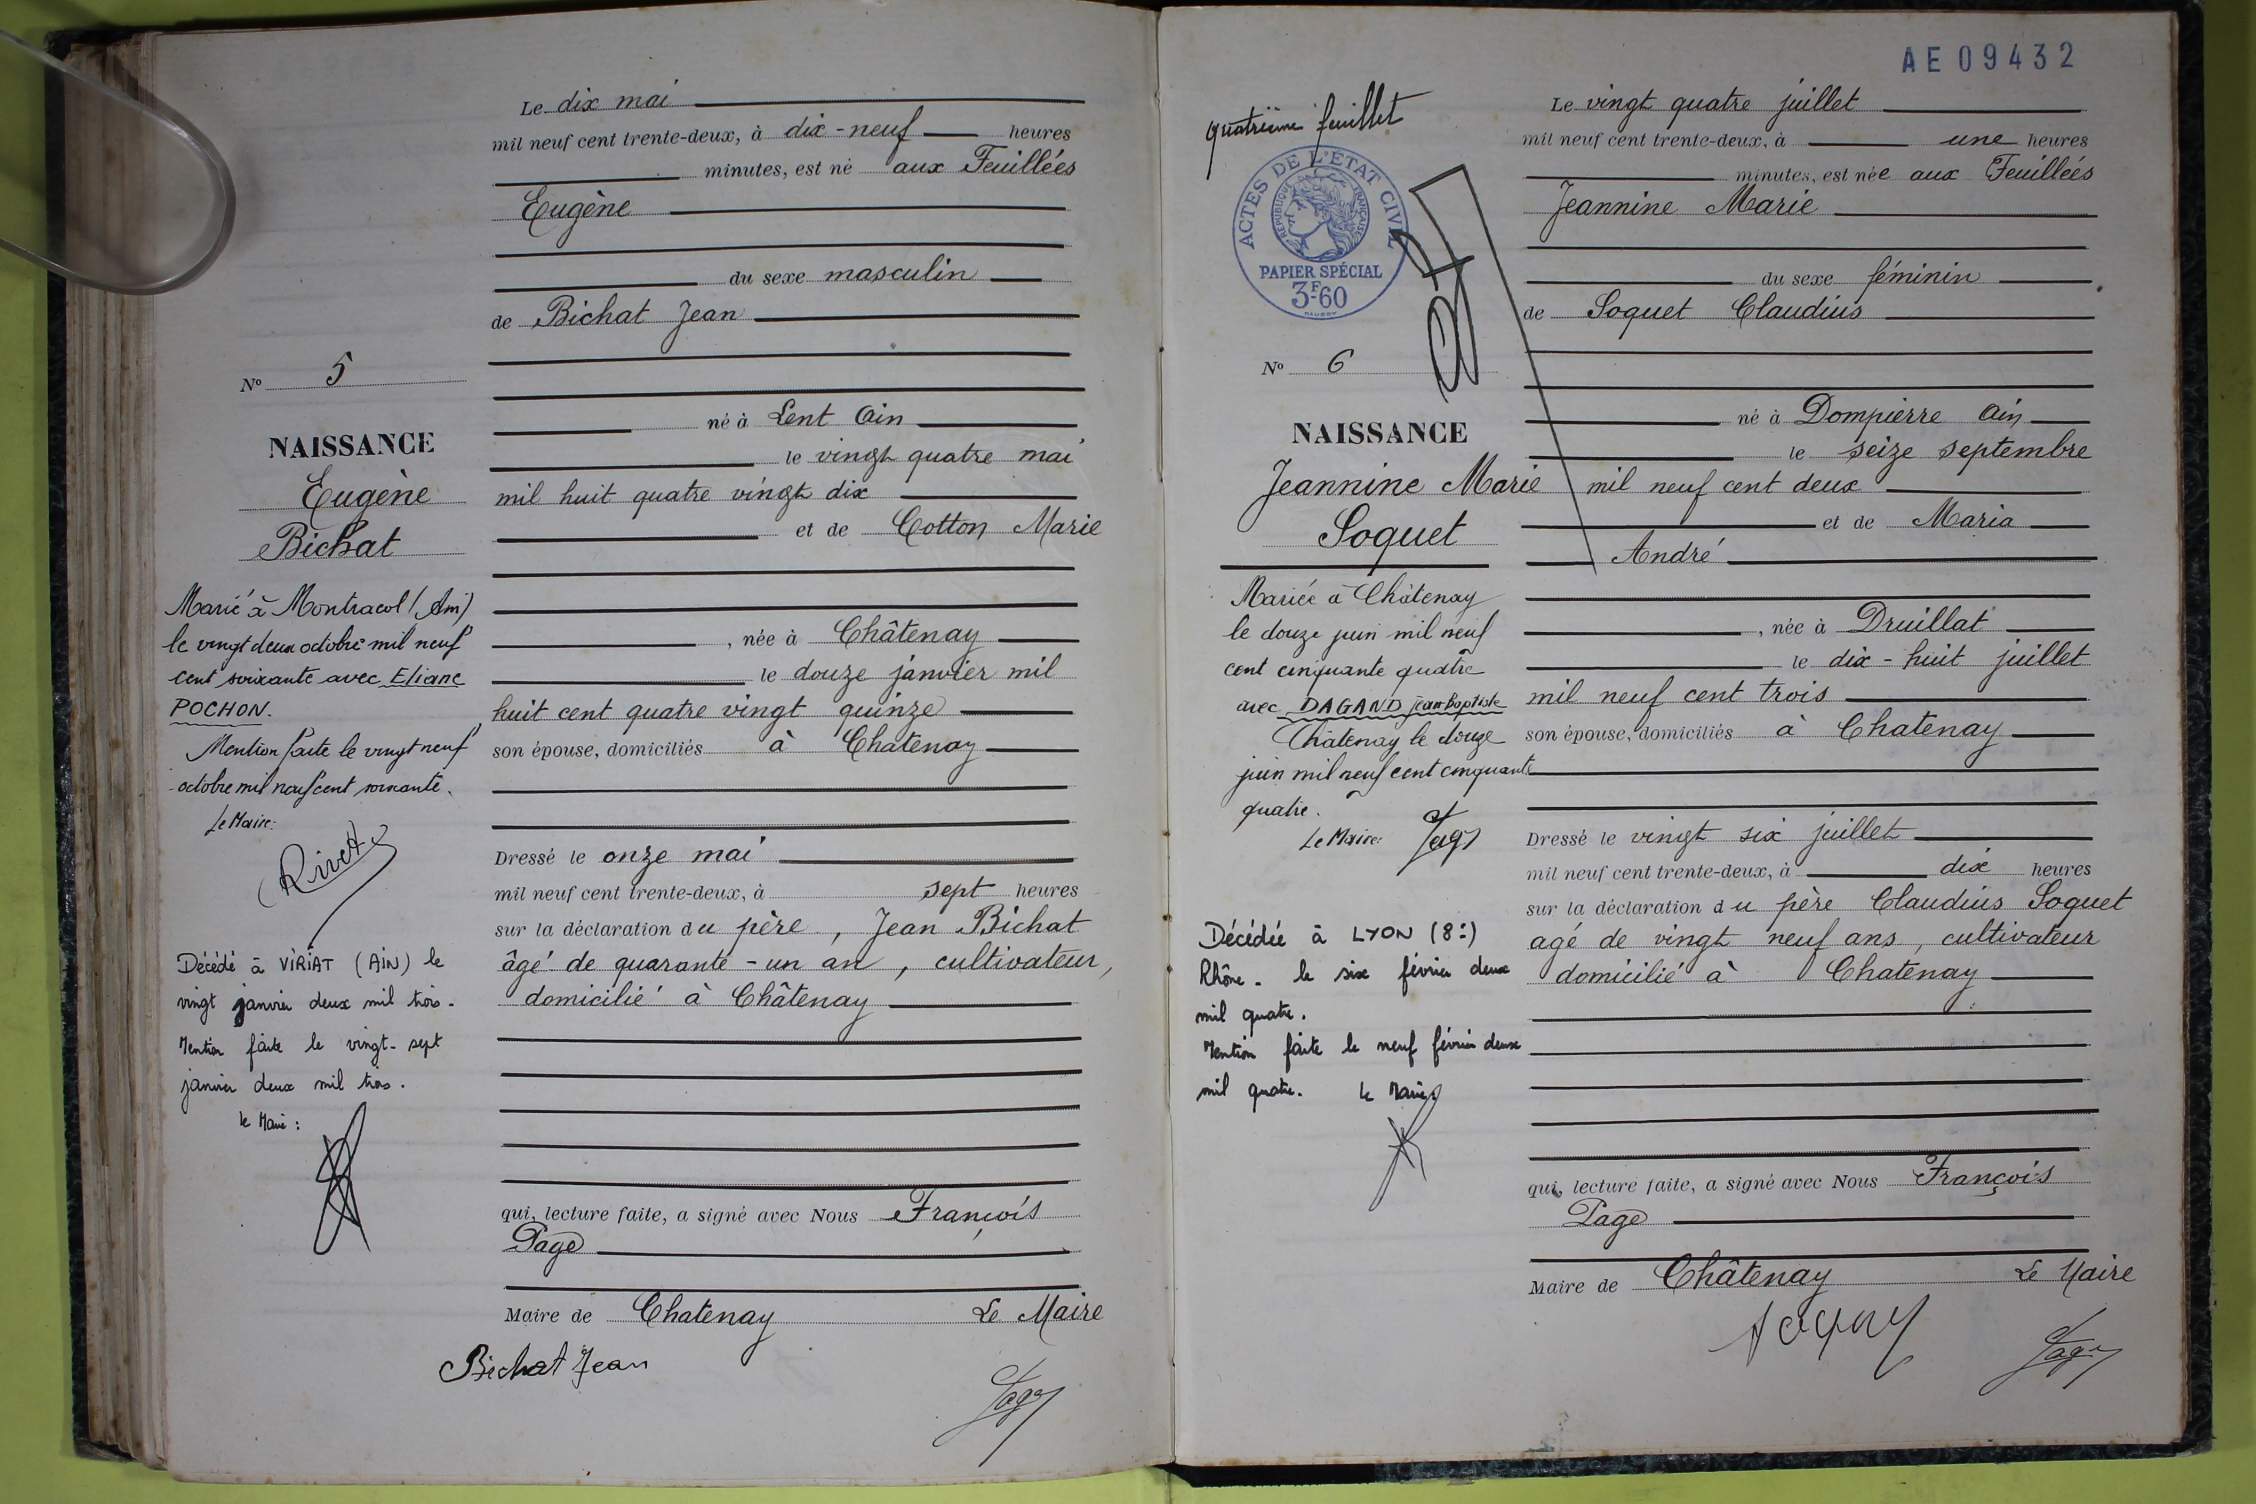 Le dix mai
mil neuf cent trente-deux, à dix-neuf heures
minutes, est né aux Feuillées
Eugène
du sexe masculin
de Bichat Jean
né à Lent Ain
le vingt quatre mai
mil huit quatre vingt dix
et de Cotton Marie
, née à Châtenay
le douze janvier mil
huit cent quatre vingt quinze
son épouse, domiciliés à Chatenay
Dressé le onze mai
mil neuf cent trente-deux, à sept heures
sur la déclaration du père, Jean Bichat
âgé de quarante-un an, cultivateur,
domicilié à Châtenay
qui, lecture faite, a signé avec Nous François
Page
Maire de Chatenay Le Maire
Bichat Jean
Page
N° 5
NAISSANCE
Eugène
Bichat
Marié à Montracol (Ain)
le vingt deux octobre mil neuf
cent soixante avec Eliane
POCHON.
Mention faite le vingt neuf
octobre mil neuf cent soixante.
Le Maire:
Rivet
Décédé à VIRIAT (AIN) le
vingt janvier deux mil trois.
Mention faite le vingt-sept
janvier deux mil trois.
Le Maire:
AE09432
quatrième feuillet
ACTES DE L'ETAT CIVIL
REPUBLIQUE FRANÇAISE
PAPIER SPÉCIAL
3F60
N° 6
NAISSANCE
Jeannine Marie
Soquet
Mariée à Châtenay
le douze juin mil neuf
cent cinquante quatre
avec DAGAND Jean Baptiste
Châtenay le douze
juin mil neuf cent cinquante
quatre.
Le Maire: Page
Décédée à LYON (8e)
Rhône. le six février deux
mil quatre.
Mention faite le neuf février deux
mil quatre. Le Maire
Le vingt quatre juillet
mil neuf cent trente-deux, à une heures
minutes, est née aux Feuillées
Jeannine Marie
du sexe féminin
de Soquet Claudius
né à Dompierre Ain
le seize septembre
mil neuf cent deux
et de Maria
André
, née à Druillat
le dix-huit juillet
mil neuf cent trois
son épouse, domiciliés à Chatenay
Dressé le vingt six juillet
mil neuf cent trente-deux, à dix heures
sur la déclaration du père Claudius Soquet
agé de vingt neuf ans, cultivateur
domicilié à Chatenay
qui, lecture faite, a signé avec Nous François
Page
Maire de Châtenay Le Maire
Page